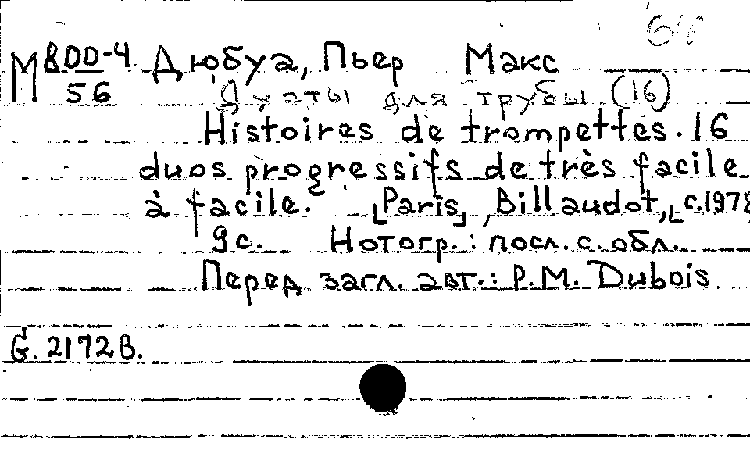 М 800-4/56 Дюбуа, Пьер Макс
Дуэты для трубы (16)
Histoires de trompettes. 16
duos progressifs de très facile
à facile. [Paris], Billaudot, [c.1978
9c. Нотогр.: посл. с. обл.
Перед загл. авт.: P.M. Dubois
G. 2172 B.